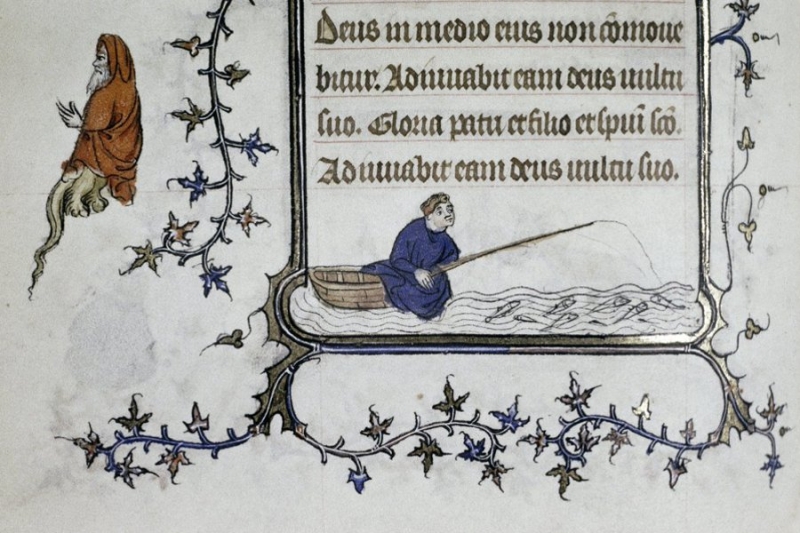 Deus in medio eius non cōmoue
bitur. Adiuuabit eam deus uultu
suo. Gloria patri et filio et spūi scō.
Adiuuabit eam deus uultu suo.